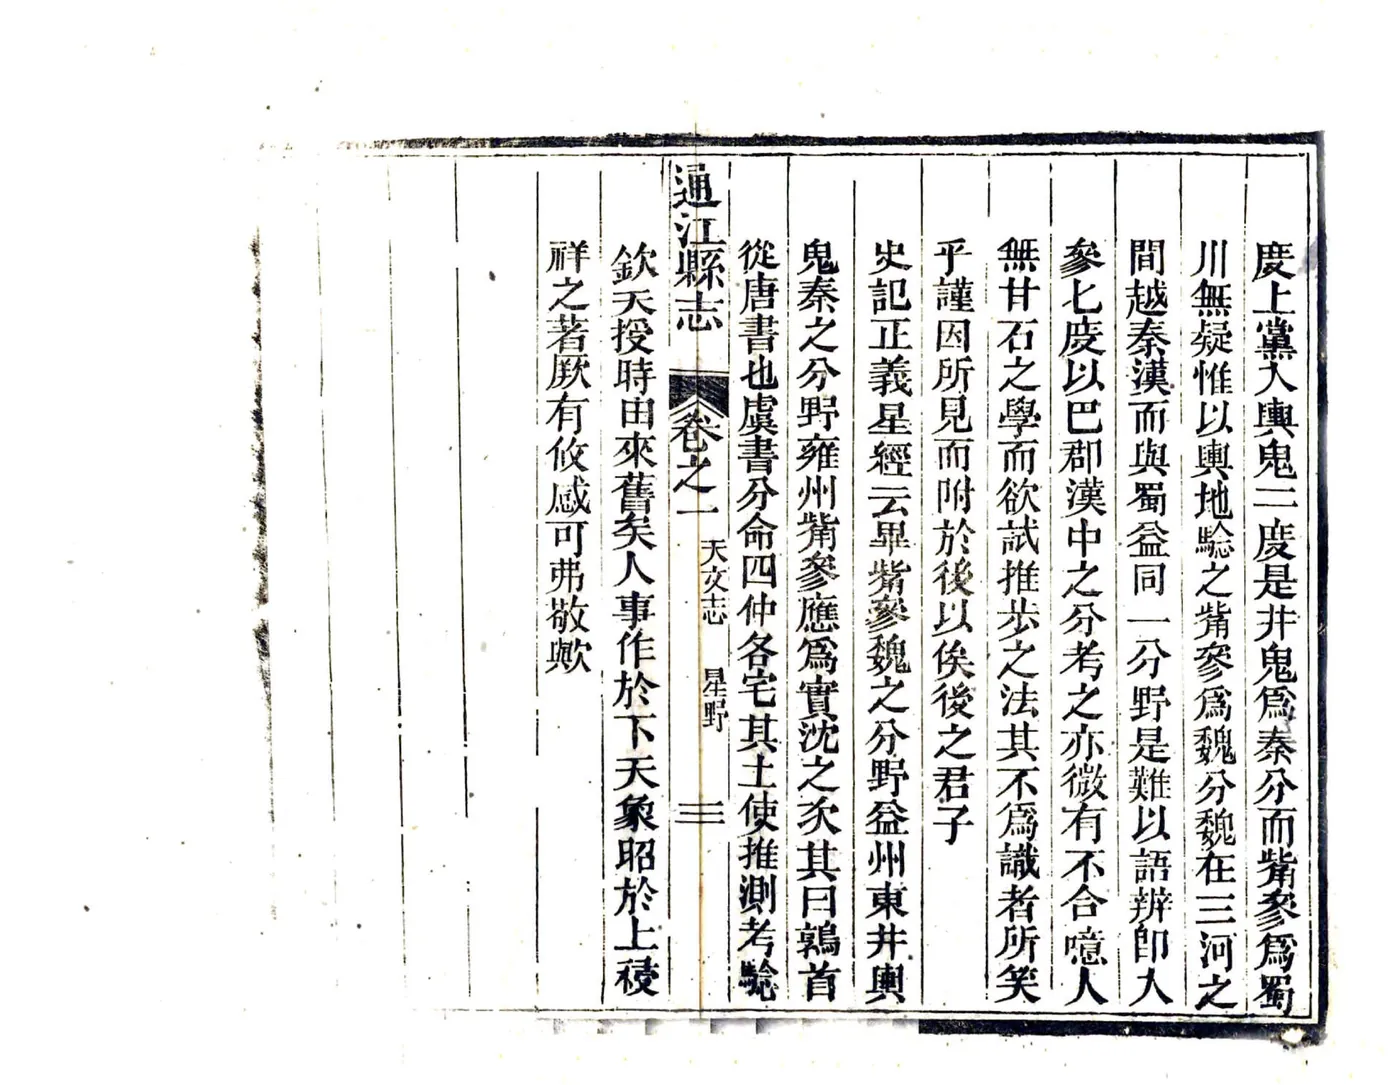 度上黨入輿鬼二度是井鬼爲秦分而觜參爲蜀
川無疑惟以輿地騐之觜參爲魏分魏在三河之
間越秦漢而與蜀益同一分野是難以語辨卽入
參七度以巴郡漢中之分考之亦微有不合噫人
無甘石之學而欲試推步之法其不爲識者所笑
乎謹因所見而附於後以俟後之君子
史記正義星經云畢觜參魏之分野益州東井輿
鬼秦之分野雍州觜參應爲實沈之次其曰鶉首
從唐書也虞書分命四仲各宅其土使推測考騐
通江縣志 卷之一 天文志 星野 三
欽天授時由來舊矣人事作於下天象昭於上祲
祥之著厥有攸感可弗敬歟